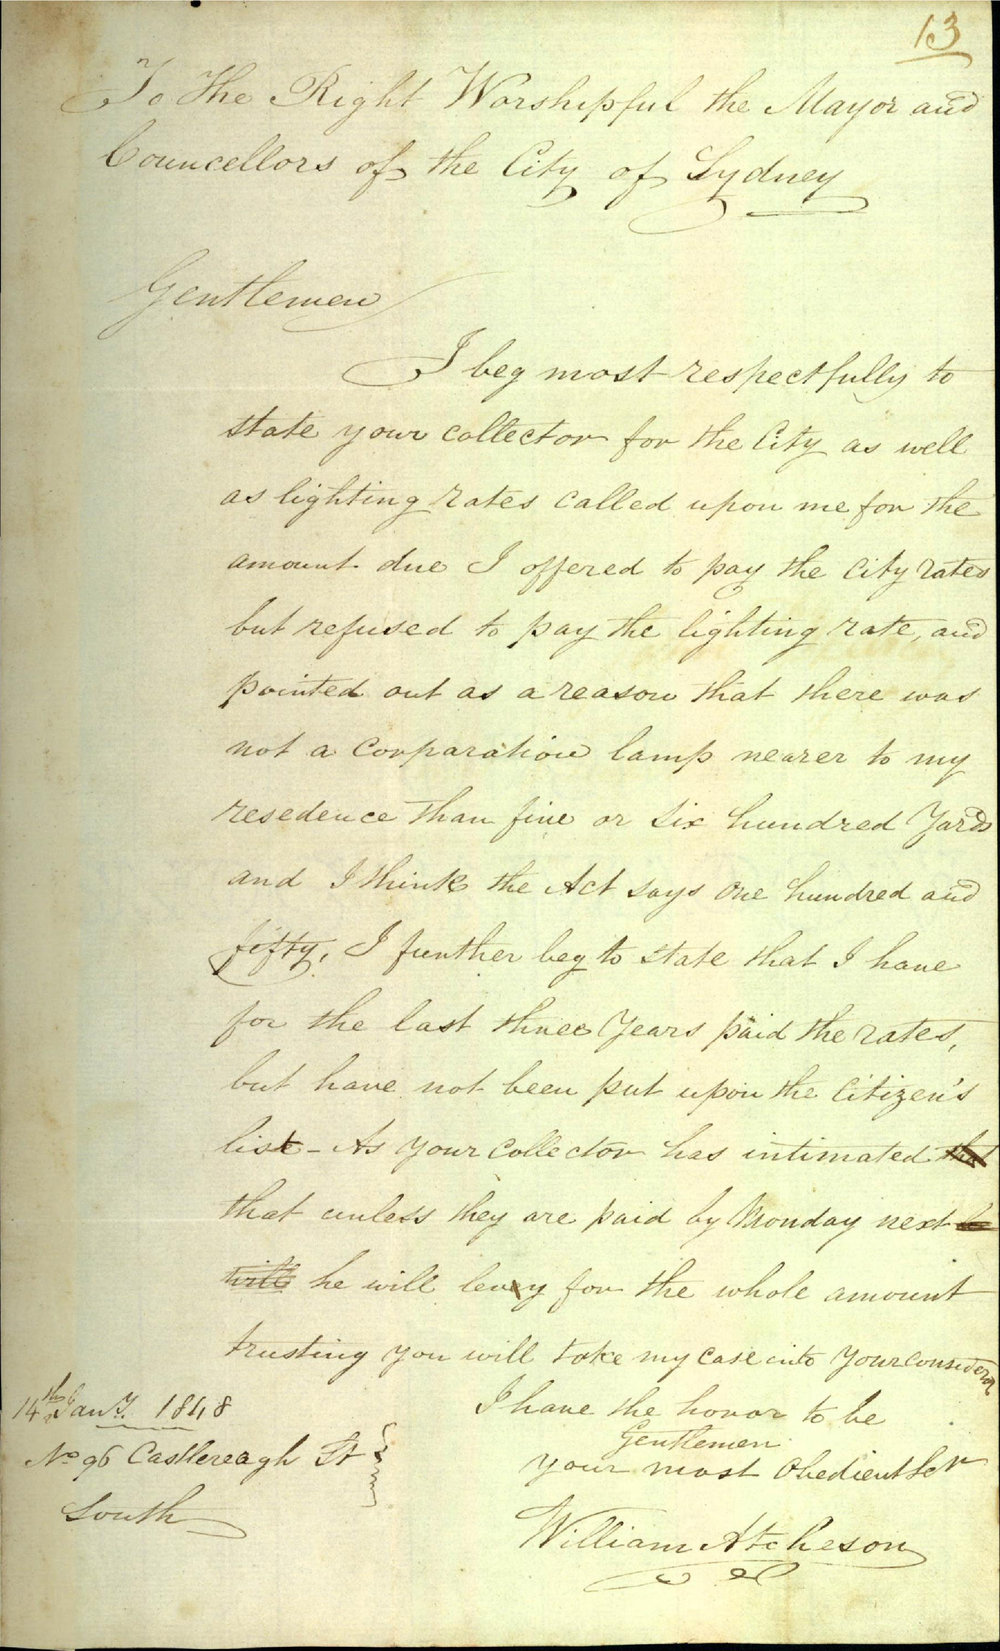 13
To The Right Worshipful the Mayor and
Councellors of the City of Sydney
Gentlemen
I beg most respectfully to
state your collector for the City as well
as lighting rates called upon me for the
amount due I offered to pay the City rates
but refused to pay the lighting rate, and
pointed out as a reason that there was
not a Corparation lamp nearer to my
resedence than five or six hundred Yards
and I think the Act says one hundred and
fifty, I further beg to state that I have
for the last three Years paid the rates,
but have not been put upon the Citizen's
list - As your Collector has intimated that
that unless they are paid by Monday next he
will he will levey for the whole amount
trusting you will take my case into your consideron
I have the honor to be
Gentlemen
your most Obedient Ser
William Atcheson
14th Jany. 1848
No 96 Castlereagh St
South